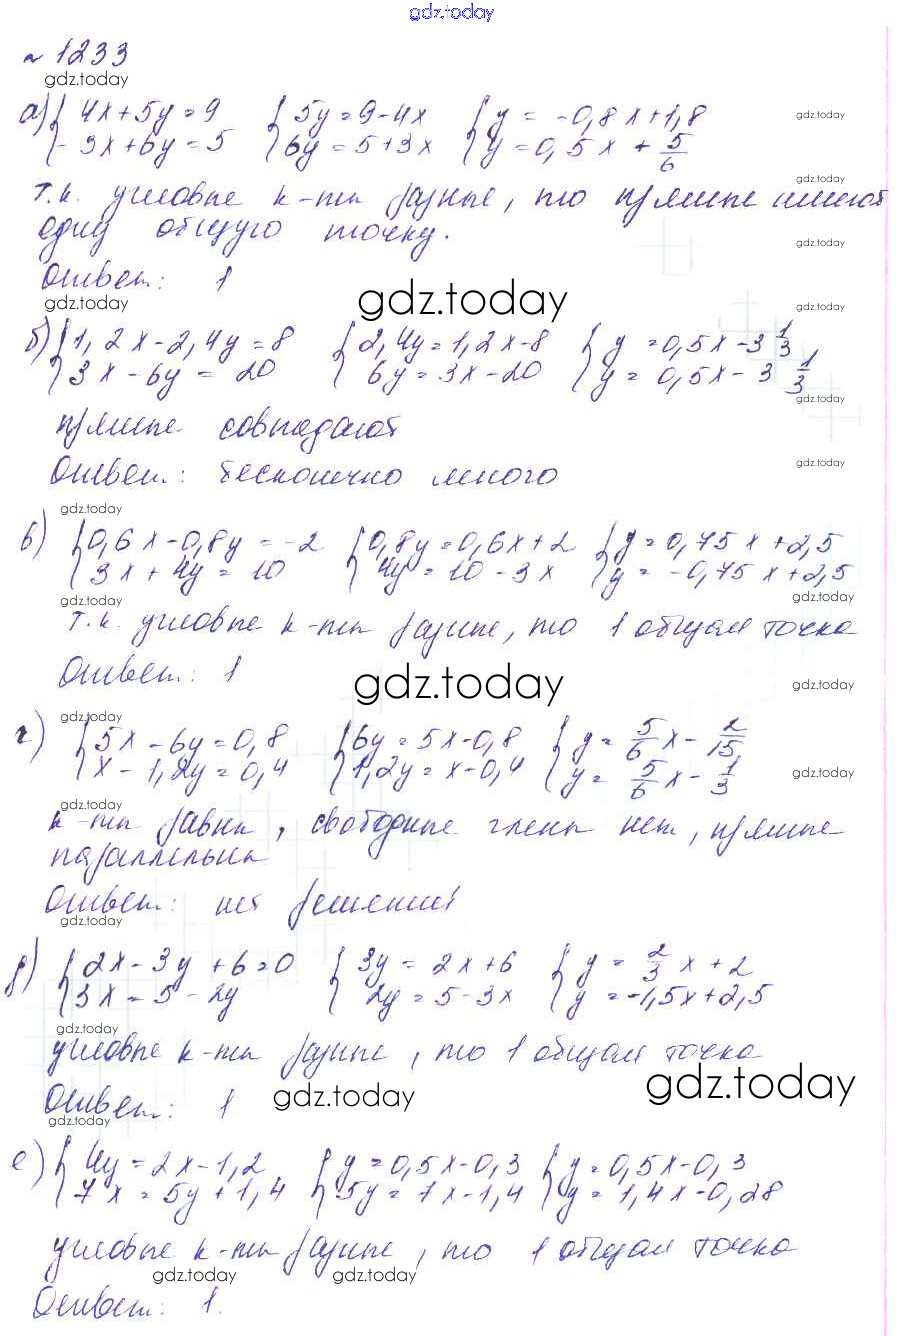 gdz.today
№ 1233
gdz.today
а) { 4x+5y=9 { 5y=9-4x { y = -0,8x+1,8
-3x+6y=5 6y=5+3x y=0,5x+5/6
gdz.today
gdz.today
т.к. угловые к-ты разные, то прямые имеют
одну общую точку.
gdz.today
Ответ: 1
gdz.today
gdz.today
gdz.today
б) { 1,2x-2,4y=8 { 2,4y=1,2x-8 { y=0,5x-3 1/3
3x-6y=20 6y=3x-20 y=0,5x-3 1/3
gdz.today
прямые совпадают
Ответ: бесконечно много
gdz.today
gdz.today
в) { 0,6x-0,8y=-2 { 0,8y=0,6x+2 { y=0,75x+2,5
3x+4y=10 4y=10-3x y=-0,75x+2,5
gdz.today
gdz.today
т.к. угловые к-ты разные, то 1 общая точка
Ответ: 1
gdz.today
gdz.today
gdz.today
г) { 5x-6y=0,8 { 6y=5x-0,8 { y=5/6x-2/15
x-1,2y=0,4 1,2y=x-0,4 y=5/6x-1/3
gdz.today
gdz.today
к-ты равны, свободные члены нет, прямые
параллельны
Ответ: нет решений
gdz.today
д) { 2x-3y+6=0 { 3y=2x+6 { y=2/3x+2
3x=5-2y 2y=5-3x y=-1,5x+2,5
gdz.today
угловые к-ты разные, то 1 общая точка
gdz.today
Ответ: 1
gdz.today
gdz.today
е) { 4y=2x-1,2 { y=0,5x-0,3 { y=0,5x-0,3
7x=5y+1,4 5y=7x-1,4 y=1,4x-0,28
угловые к-ты разные, то 1 общая точка
gdz.today
gdz.today
Ответ: 1.